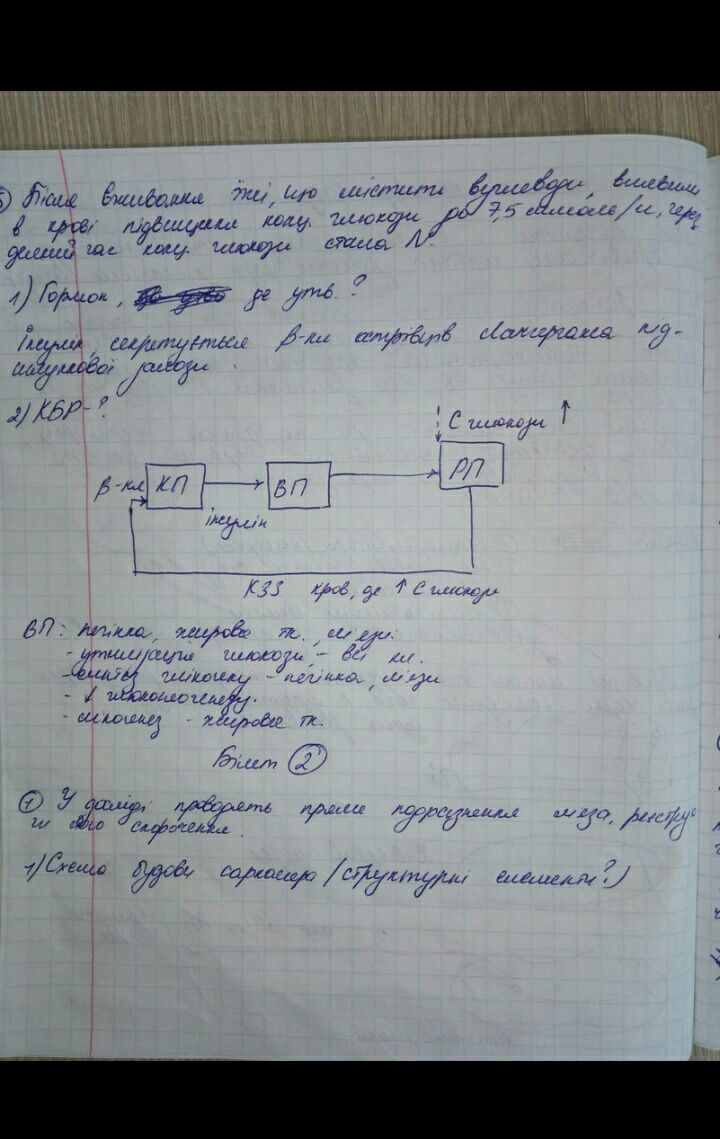 5) Після вживання їжі, що містить вуглеводи, виявили
в крові підвищення конц. глюкози до 7,5 ммоль/л, через
деякий час конц глюкози стала N.
1) Гормон, де утв.?
Інсулін, секретується β-кл острівців Лангерганса під-
шлункової залози.
2) КБР-?
С глюкози ↑
β-кл КП ВП РП
інсулін
КЗЗ кров, де ↑ С глюкози
ВП: печінка, жирова тк., м'язи.
- утилізація глюкози, - всі кл.
- синтез глікогену - печінка, м'язи
- ↓ глюконеогенезу.
- ліпогенез - жирова тк.
Білет 2
1 У досліді проводять пряме подразнення м'яза, реєструю
чи його скорочення.
1) Схема будови саркомера (структурні елементи?)